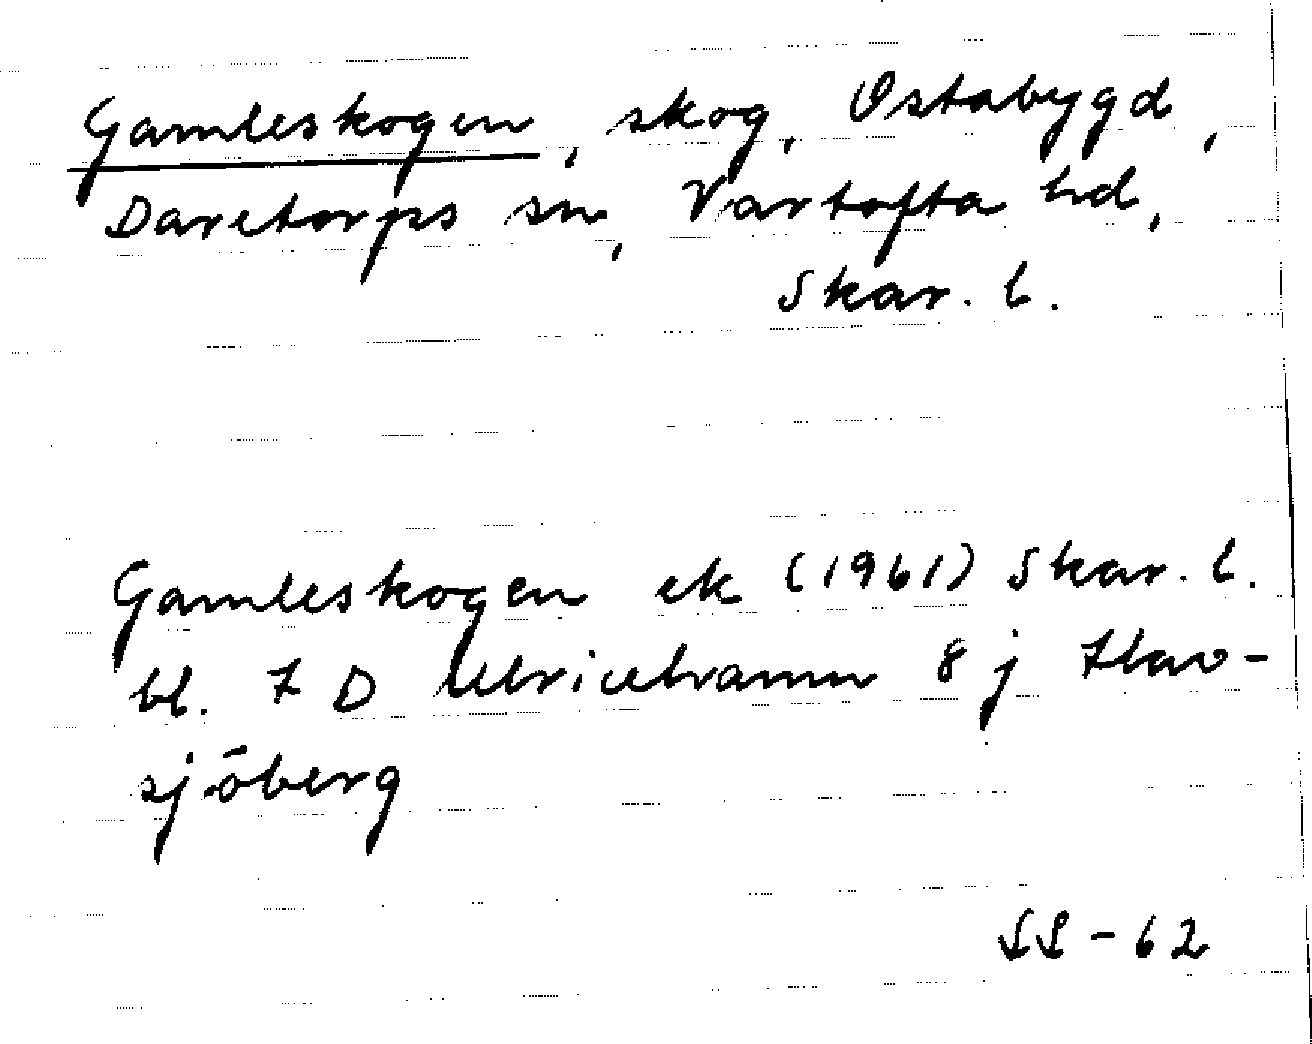 Gamleskogen, skog, Ostabygd,
Daretorps sn, Vartofta hd,
Skar. l.
Gamleskogen ek (1961) Skar. l.
bl. 7 D Ulricehamn 8 j Hav-
sjöberg
SS - 62